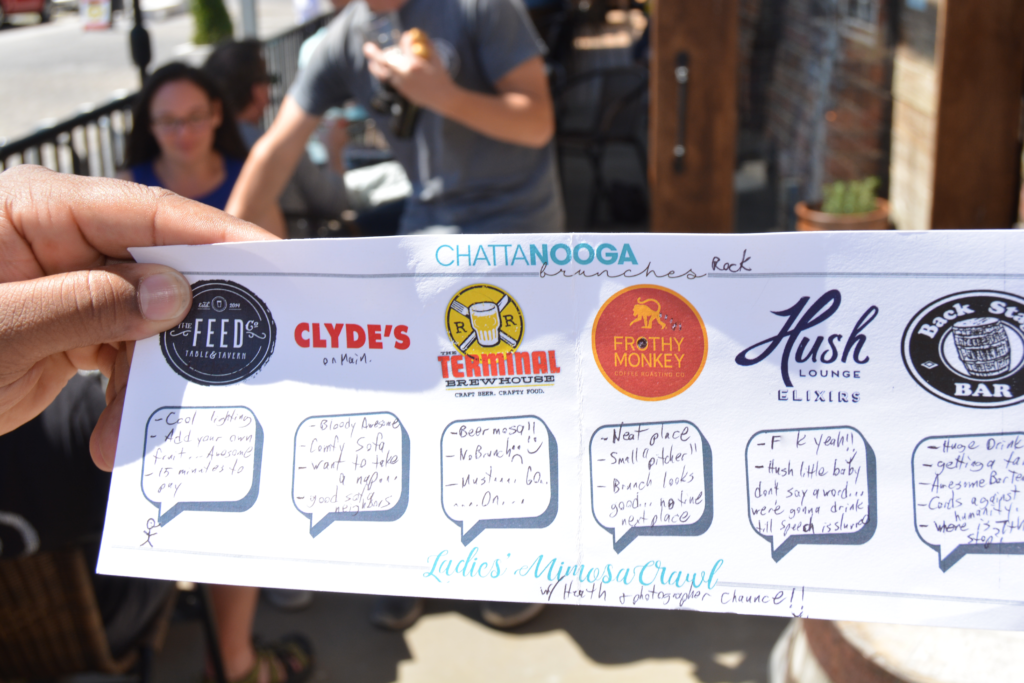 CHATTANOOGA
brunches Rock
EST. 2011
THE FEED Co
TABLE & TAVERN
CLYDE'S
on Main.
R R
THE
TERMINAL
BREWHOUSE
CRAFT BEER. CRAFTY FOOD.
FROTHY
MONKEY
COFFEE ROASTING CO.
Hush
LOUNGE
ELIXIRS
Back Sta
BAR
- Cool lighting
- Add your own
fruit... Awesome
- 15 minutes to
pay
- Bloody Awesome
- Comfy Sofa
- want to take
a nap...
- good sofa
neighbors
- Beer mosa!!
- No Brunch
- Must.... Go..
....On....
- Neat place
- Small "pitcher"!
- Brunch looks
good... no time
next place
- F k yeah!!
- Hush little baby
don't say a word...
we're gonna drink
till speech is slured
- Huge Drink
- getting a ta
- Awesome BarTen
- Cards against
humanity.
- where is 7th
stop!
Ladies' Mimosa Crawl
w/ Heath & photographer Chaunce!!